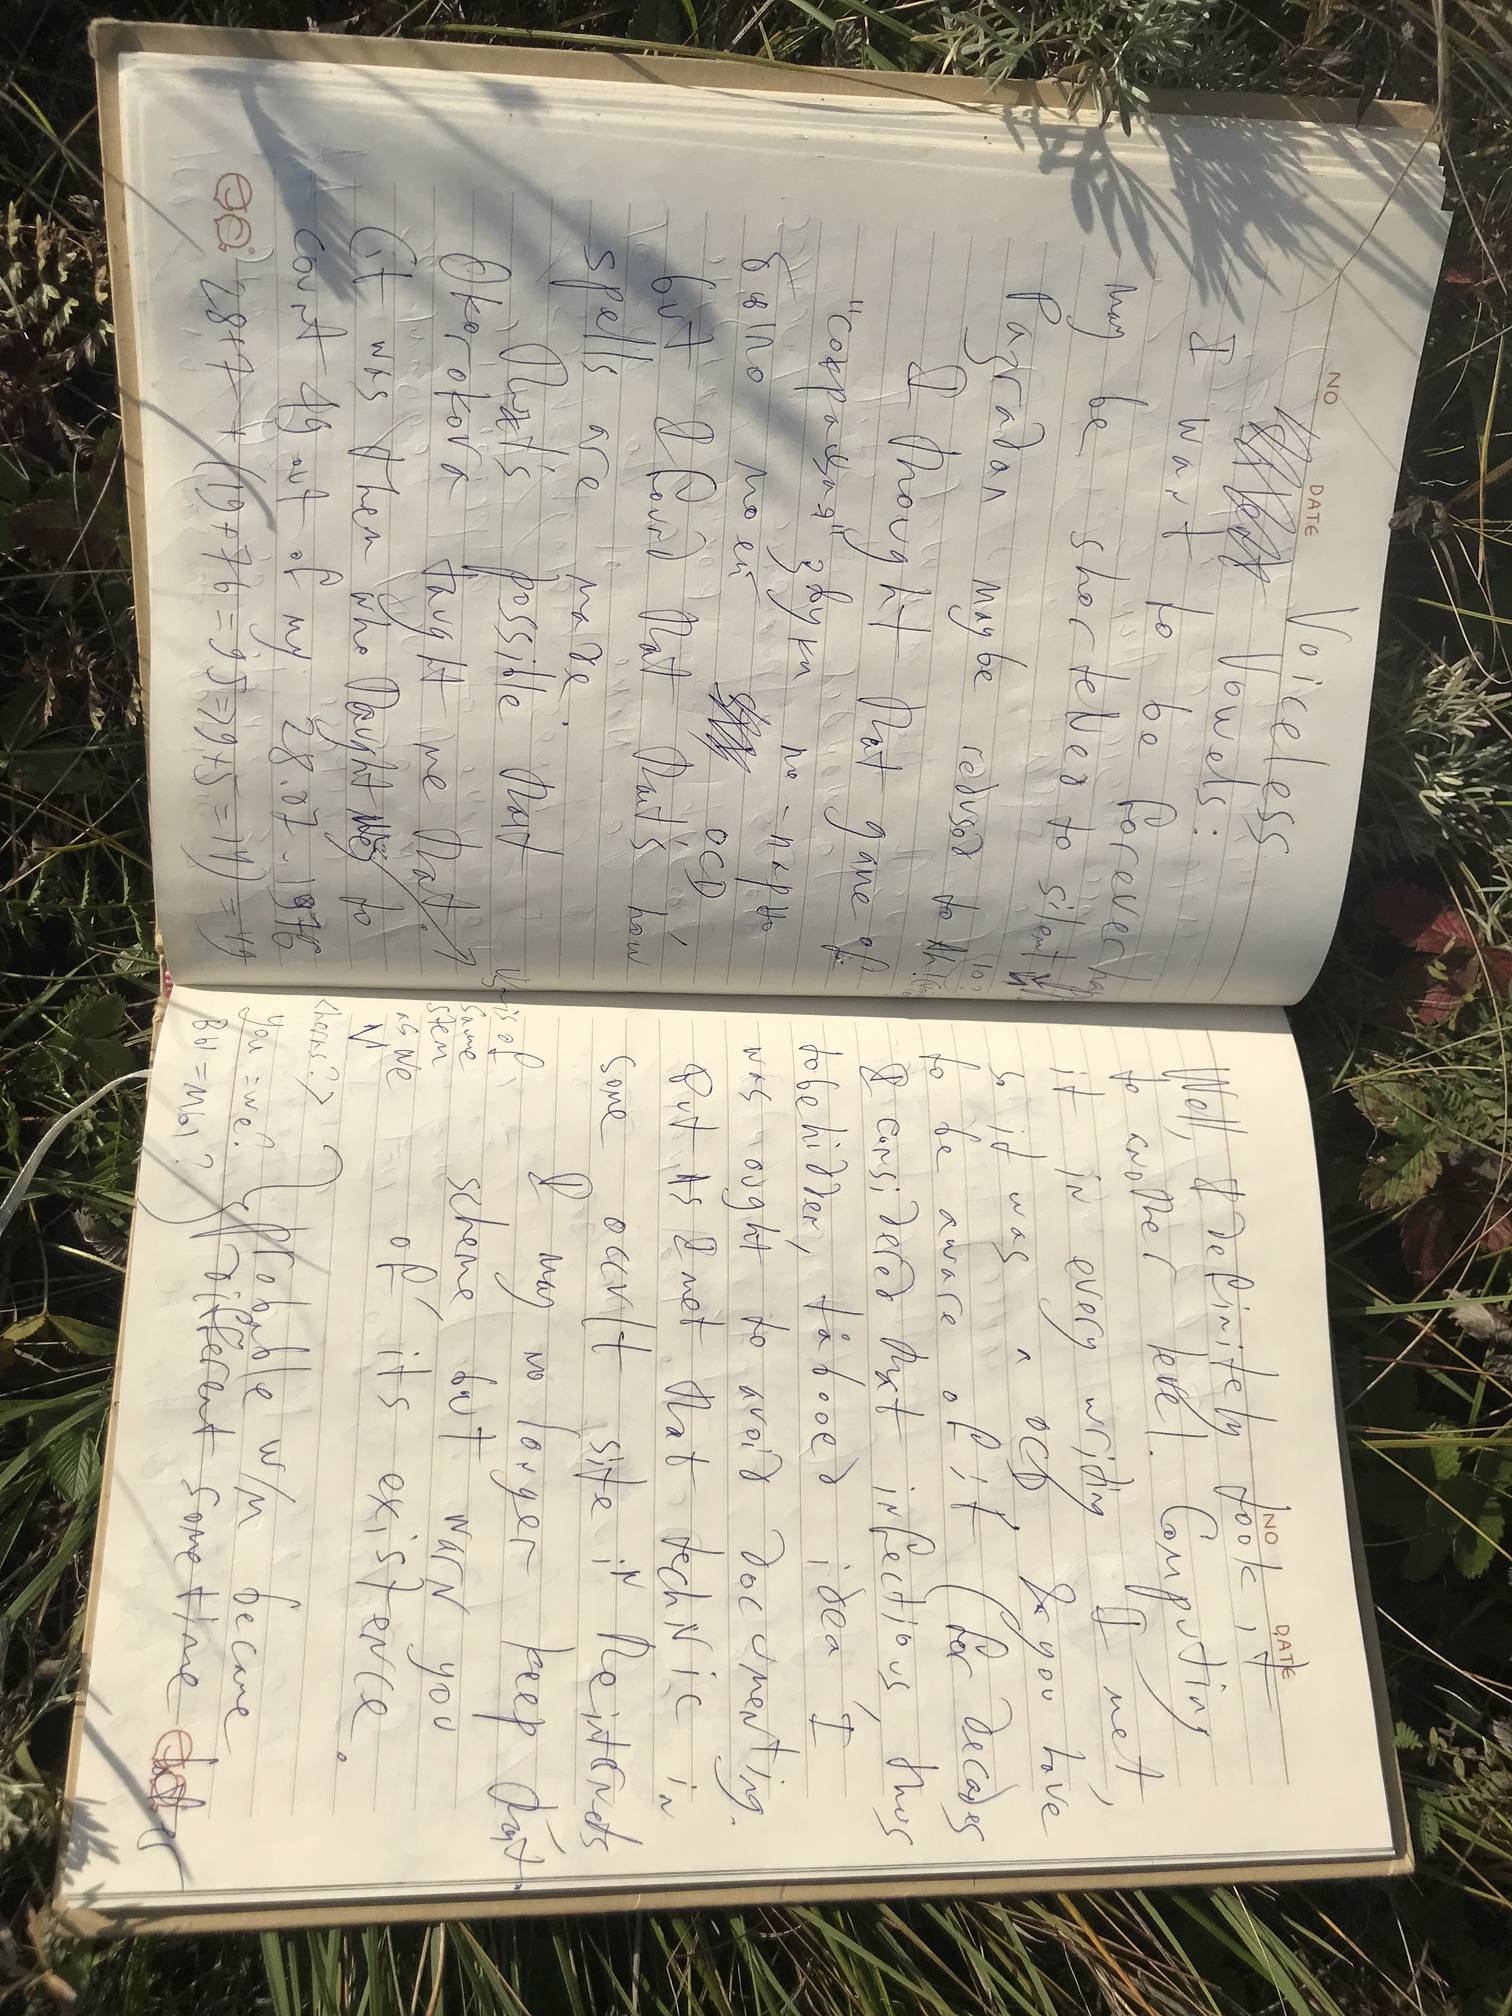 NO DATE
Voiceless
Vowels:
I want to be forever h,
may be shorteNed to silent
Pagradan may be redusd to
I thought that game of
"сокращая" звуки по-парно
было моей OCD
but I found that that's how
spells are made.
That's possible that
Okorokova taught me that.
(it was then who taught me to
count 49 out of my 28.07.1976
28+7+(19+76=95=>9+5=14)=49
NO DATE
Well, I definitely took it
to another level. Computing
it in every writing I met,
so it was a OCD you have
to be aware of it (for decades
I considered that infectious, thus
to be hidden, tabooed idea I
was ought to avoid documenting.
But as I met that techNic in
some occult site in the internets
I may no longer keep that
scheme but warN you
of its existence.
is of
same
stem
as we
you = we?
вы = мы?
probable w/m became
different some time later